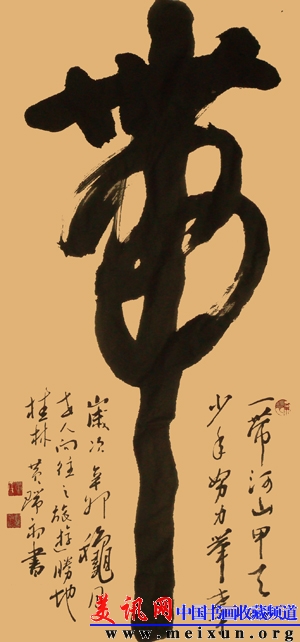 一带河山甲天
少年努力举
歲次辛卯穐月
人向往之旅遊勝地
桂林黄瑞初書
美讯网 中国书画收藏频道
www.meixun.org